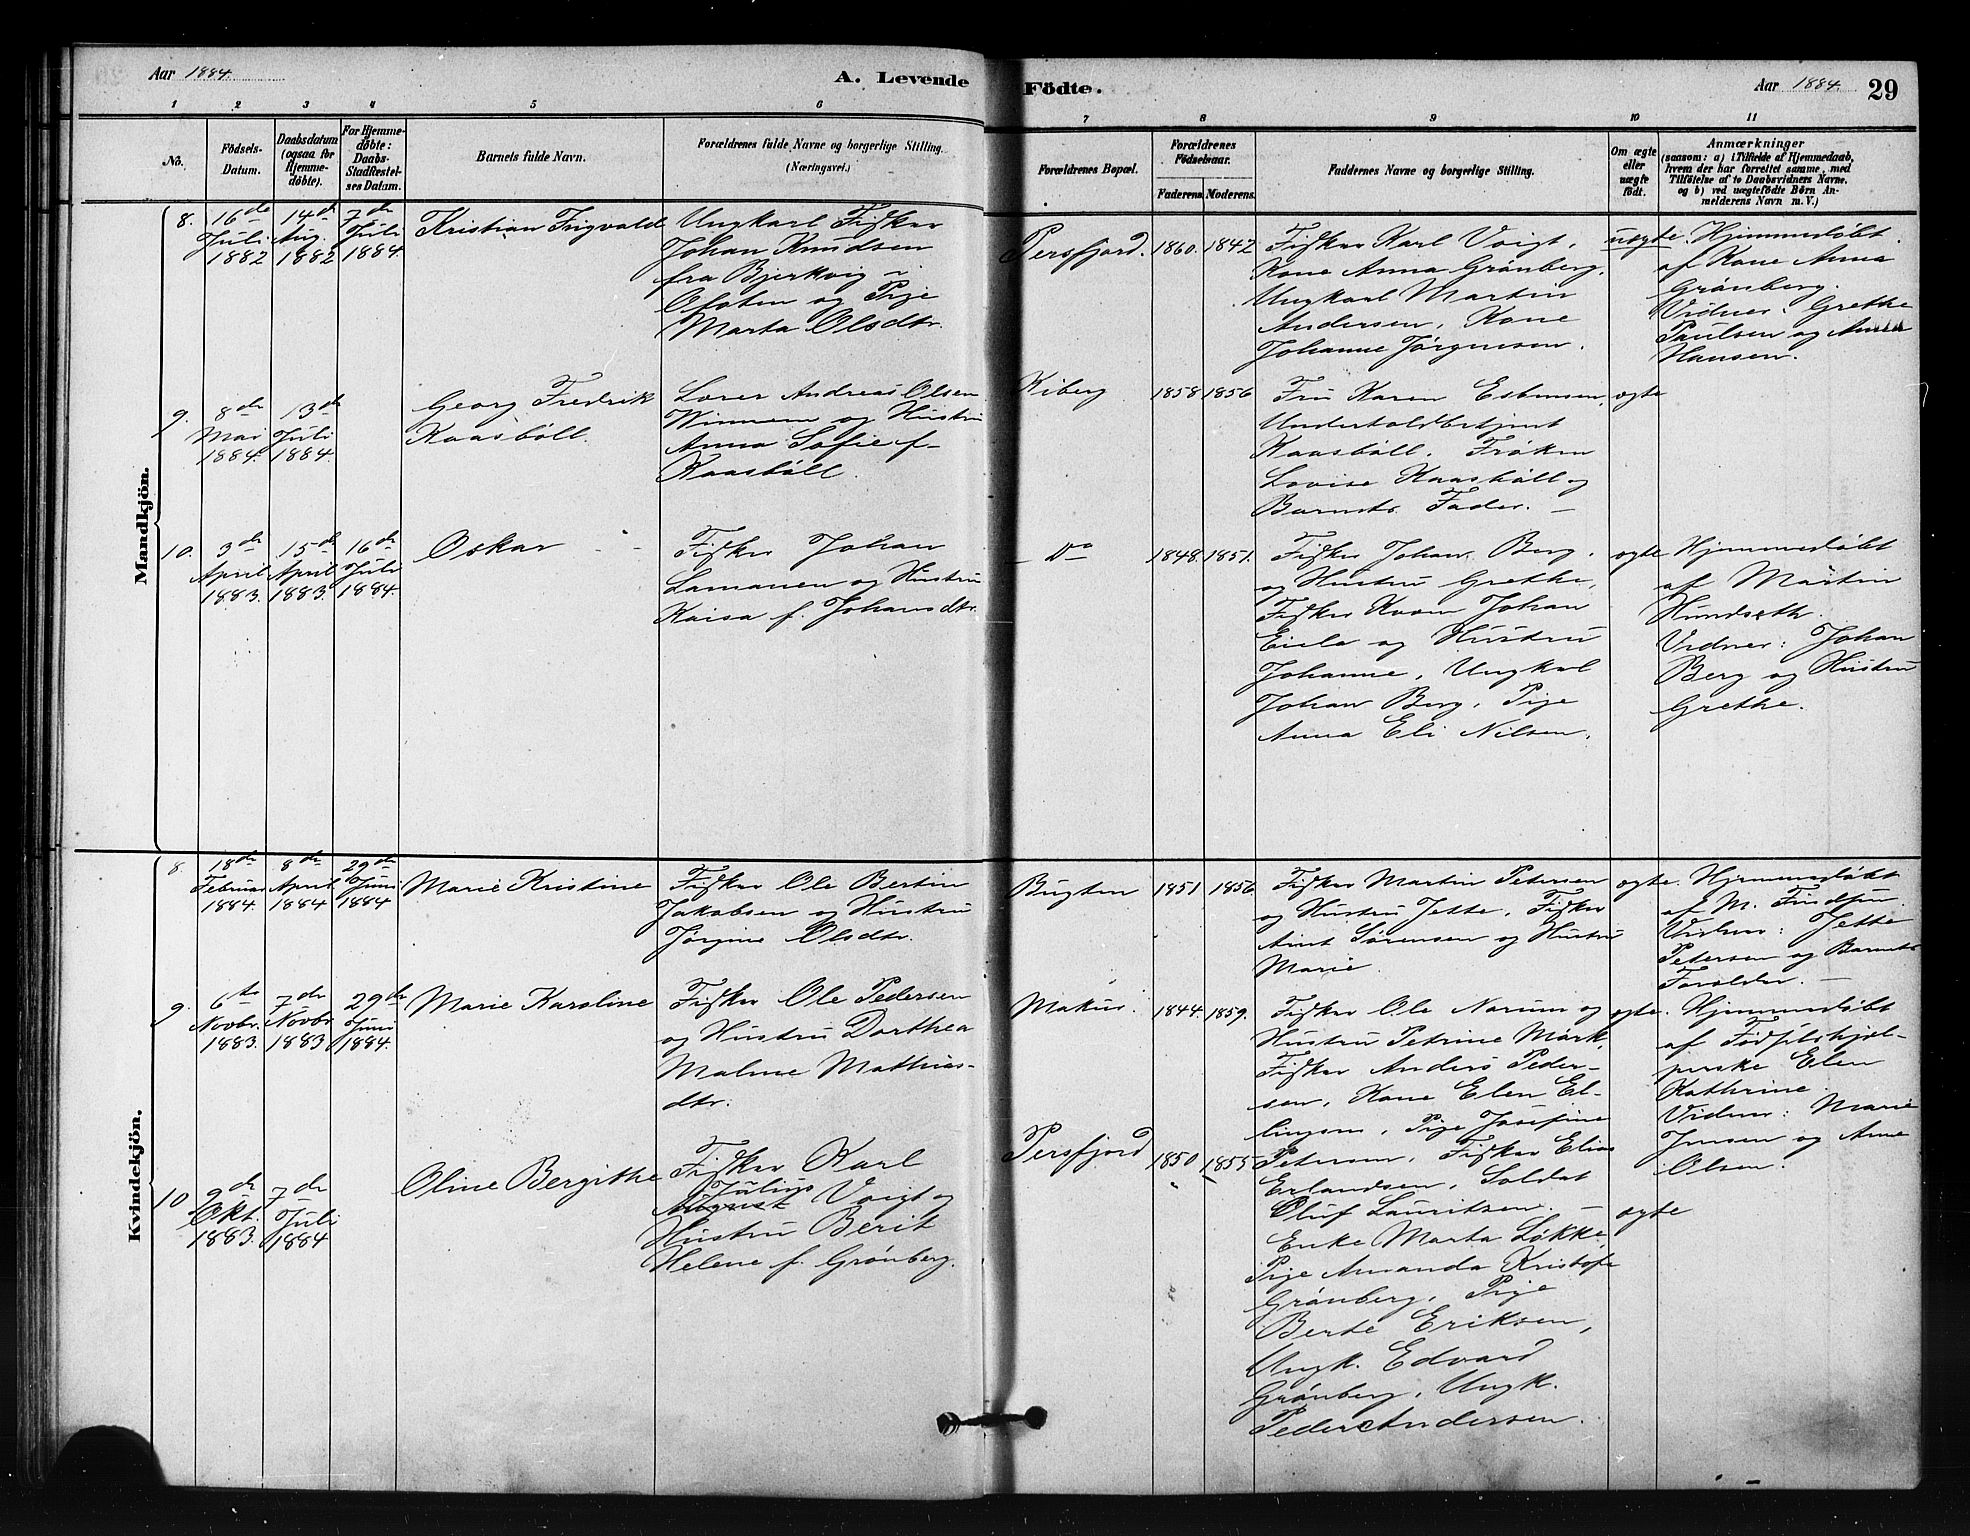 Aar 1884.
A. Levende
Födte.
Aar 1884.
29
1 2 3 4 5 6 7 8 9 10 11
No.
Födsels-
Datum.
Daabsdatum
(ogsaa for
Hjemme-
døbte).
For Hjemme-
døbte:
Daabs-
Stadfæstel-
ses Datum.
Barnets fulde Navn.
Forældrenes fulde Navne og borgerlige Stilling.
(Næringsvei.)
Forældrenes Bopæl.
Forældrenes
Födselsaar.
Faderens. Moderens.
Faddernes Navne og borgerlige Stilling.
Om ægte
eller
uægte
født.
Anmærkninger
(saasom: a) i Tilfælde af Hjemmedaab,
hvem der har forrettet samme, med
Tilføielse af to Daabsvidners Navne,
og b) ved uægtefødte Børn An-
melderens Navn m. V.)
Mandkjön.
8.
16de
Juli
1882
14de
Aug.
1882
7de
Juli
1884.
Kristian Trigvald
Ungkarl Fisker
Johan Knudsen
fra Bjerkvig i
Ofoten og Pige
Marta Olsdtr.
Persfjord.
1860. 1842
Fisker Karl Voigt,
Kone Anna Grønberg,
Ungkarl Martin
Andersen, Kone
Johanne Jørgensen.
uægte.
Hjemmedøbt
af Kone Anna
Grønberg.
Vidner: Grethe
Paulsen og Anna
Hansen.
9.
8de
Mai
1884.
13de
Juli
1884.
Georg Fredrik
Kaasbøll
Lærer Andreas Olsen
Winnem og Hustru
Anna Sofie f.
Kaasbøll.
Kiberg
1858 1856
Fru Karen Esbensen,
Underholdbetjent
Kaasbøll, Frøken
Lovise Kaasbøll og
Barnets Fader. —
ægte
10.
3de
April
1883.
15de
April
1883.
16de
Juli
1884.
Oskar
Fisker Johan
Lamanen og Hustru
Kaisa f. Johansdtr.
— Do
1848. 1851.
Fisker Johan Berg,
og Hustru Grethe,
Fisker Kvæn Johan
Eiela og Hustru
Johanne, Ungkarl
Johan Berg, Pige
Anna Eli Nilsen.
ægte
Hjemmedøbt
af Martin
Hundseth.
Vidner: Johan
Berg og Hustru
Grethe.
Kvindekjön.
8
18de
Februar
1884.
8de
April
1884
29de
Juni
1884
Marie Kristine
Fisker Ole Bertin
Jakobsen og Hustru
Jørgine Olsdtr.
Bugten
1851 1856
Fisker Martin Petersen
og Hustru Jette, Fisker
Arnt Sørensen og Hustru
Marie.
ægte.
Hjemmedøbt
af M.
Vidner: Jette
Petersen og Barnets
Forældre. —
9.
6te
Novbr.
1883.
7de
Novbr
1883
29de
Juni
1884.
Marie Karoline
Fisker Ole Pedersen
og Hustru Dorthea
Malene Mathias-
dtr.
Makur.
1844. 1859.
Fisker Ole Norum og
Hustru Petrine Mørk,
Fisker Anders Peder-
sen, Kone Elen El-
lingsen, Pige Josefine
Petersen, Fisker Elias
Erlandsen, Soldat
Oluf Lauritsen. —
ægte.
Hjemmedøbt
af Fødselshjæl-
perske Elen
Kathrine.
Vidner: Marie
Jensen og Anne
Olsen.
10
9de
Okt.
1883.
7de
Juli
1884
Oline Bergithe
Fisker Karl
Julius
August Voigt og
Hustru Berit
Helene f. Grønberg.
Persfjord
1850 1855
Enke Marta Løkke,
Pige Amanda Kristofa
Grønberg, Pige
Berte Eriksen,
Ungk. Edvard
Grønberg, Ungk.
Peder Andersen.
ægte